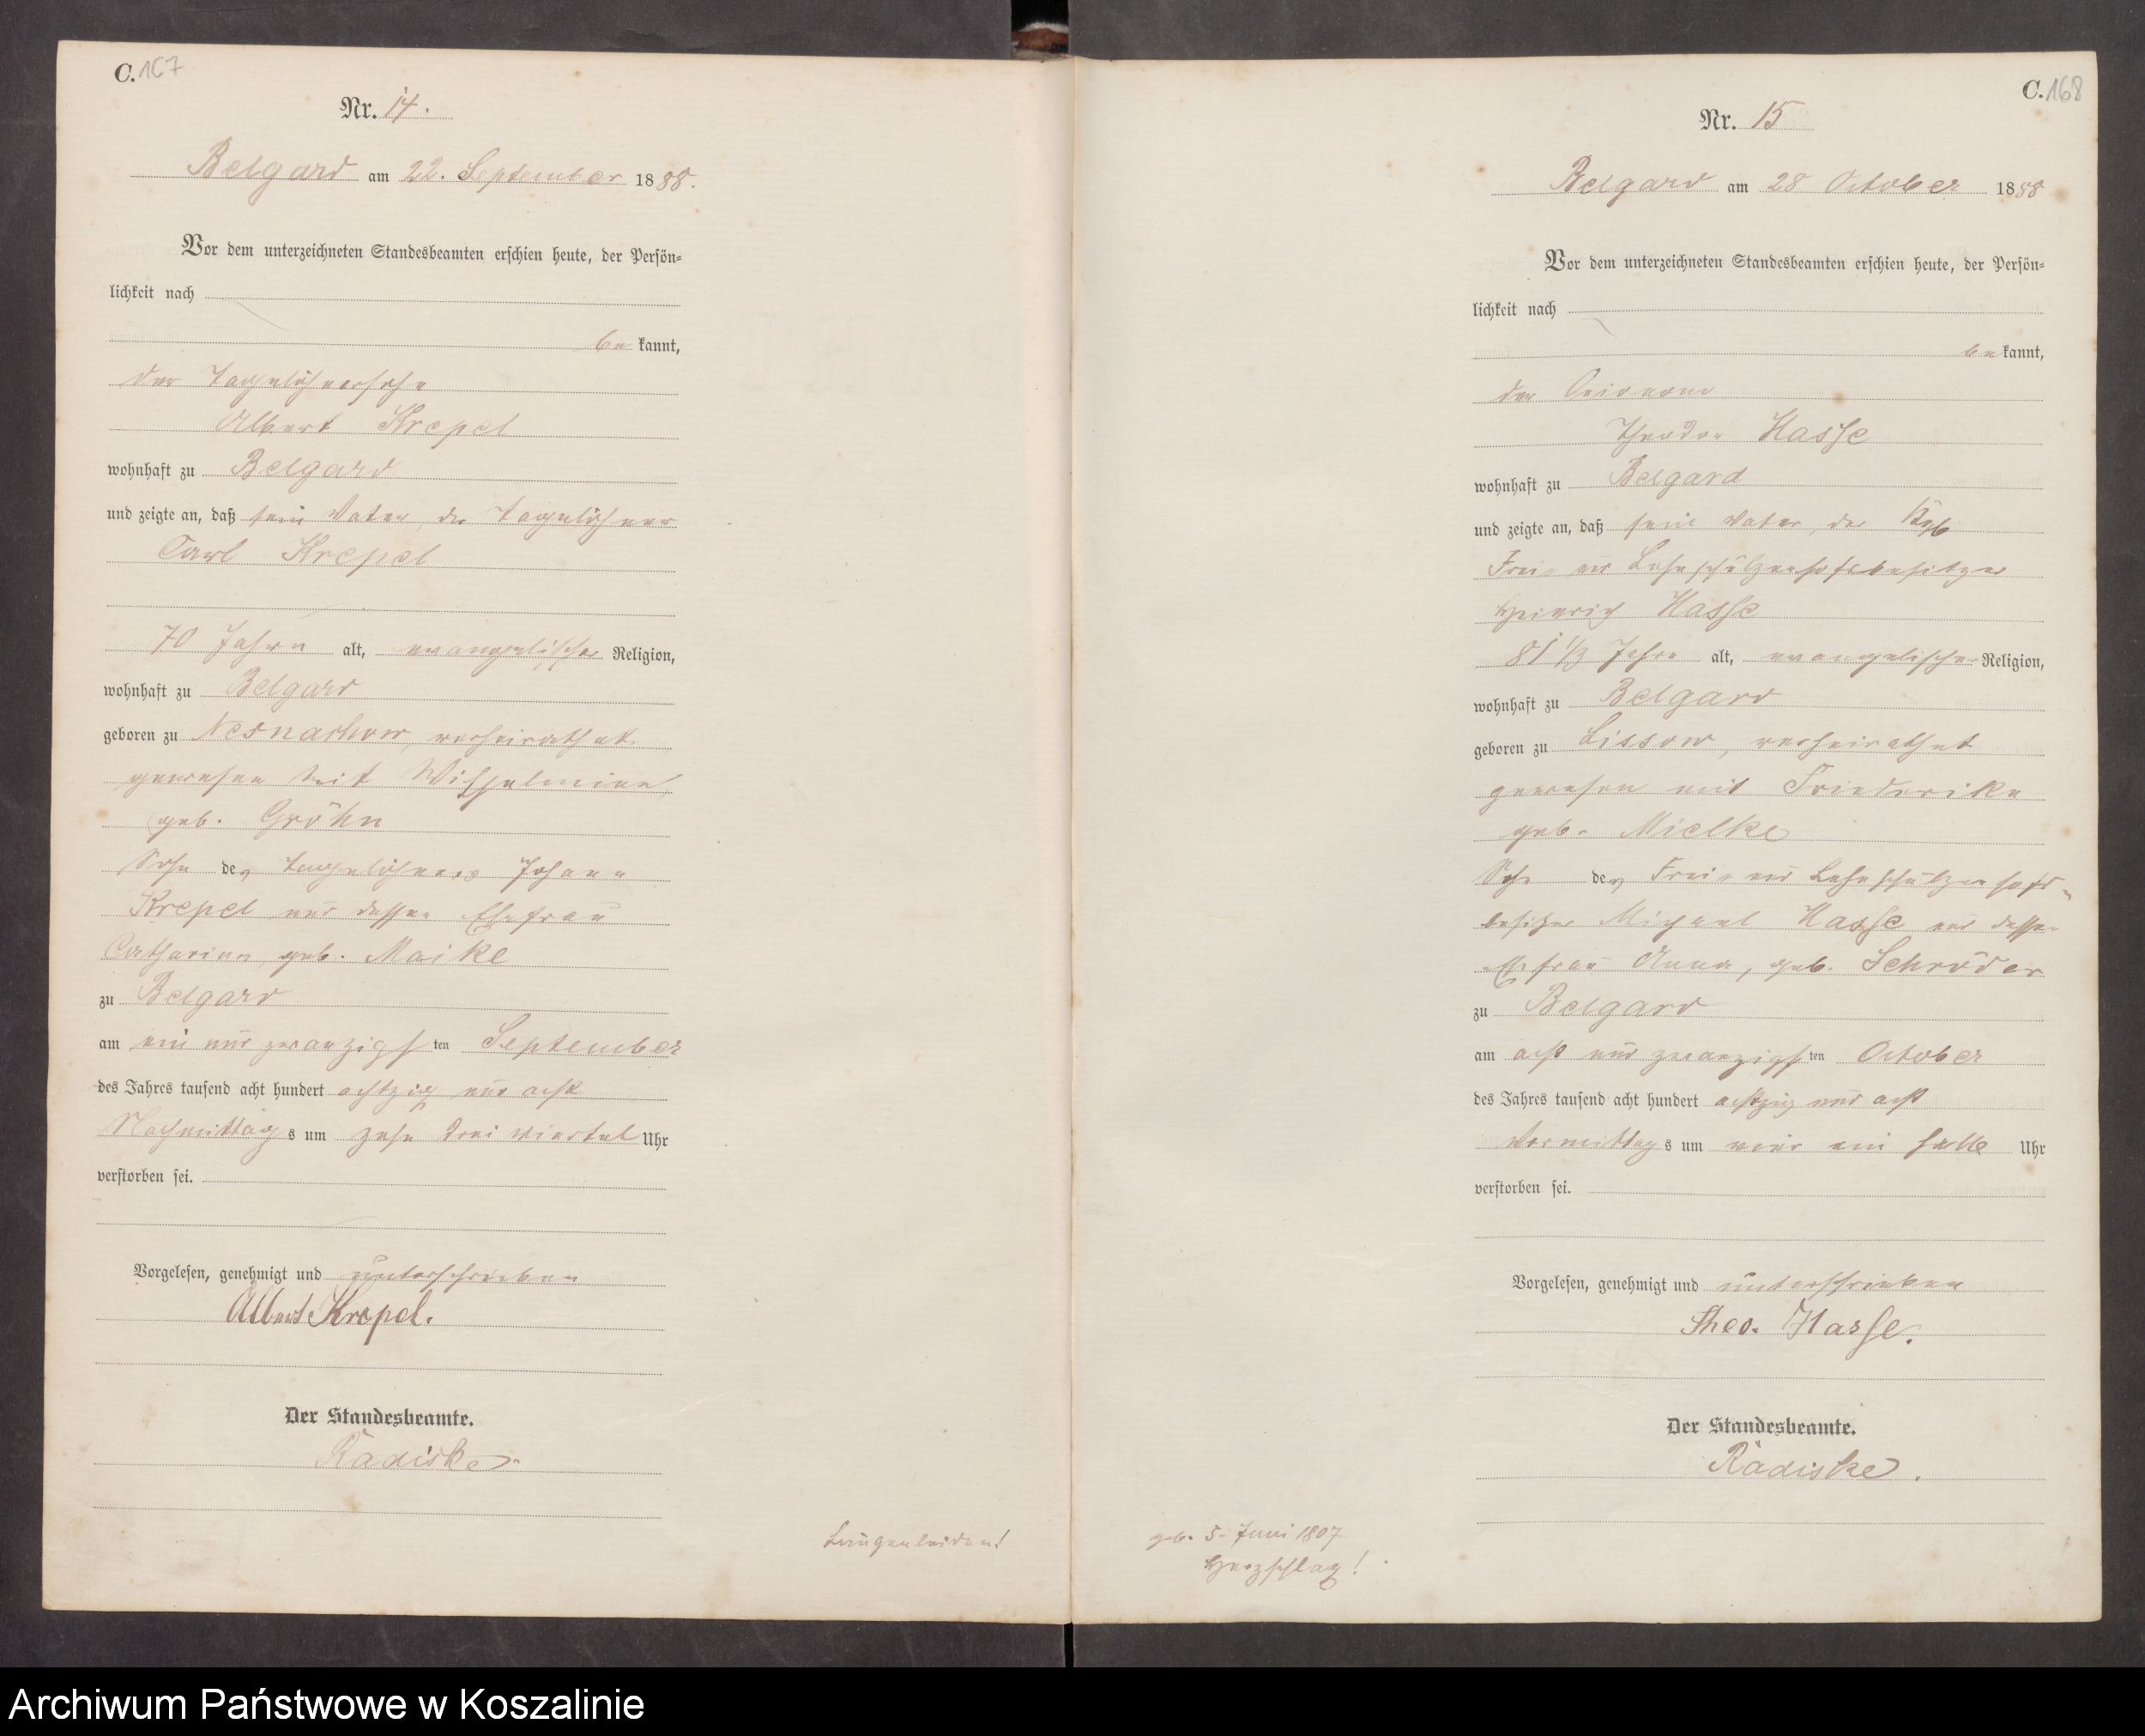 C. 167
Nr. 14.
Belgard am 22. September 1888.
Vor dem unterzeichneten Standesbeamten erschien heute, der Persön-
lichkeit nach
be kannt,
der Tagelöhnersohn
Albert Krepel
wohnhaft zu Belgard
und zeigte an, daß sein Vater, der Tagelöhner
Carl Krepel
70 Jahre alt, evangelischer Religion,
wohnhaft zu Belgard
geboren zu Nesnachow, verheirathet
gewesen mit Wilhelmine,
geb. Gröhn
Sohn des Tagelöhners Johann
Krepel und dessen Ehefrau
Catharina, geb. Maike
zu Belgard
am ein und zwanzigsten September
des Jahres tausend acht hundert achtzig und acht
Nachmittags um zehn drei viertel Uhr
verstorben sei.
Vorgelesen, genehmigt und unterschrieben
Albert Krepel.
Der Standesbeamte.
Rädiske.
Lungenleiden!
C. 168
Nr. 15
Belgard am 28 October 1888
Vor dem unterzeichneten Standesbeamten erschien heute, der Persön-
lichkeit nach
be kannt,
der
Theodor Hasse
wohnhaft zu Belgard
und zeigte an, daß sein Vater, der
Frei- und Lehnschulzenhofsbesitzer
Heinrich Hasse
81 1/3 Jahre alt, evangelischer Religion,
wohnhaft zu Belgard
geboren zu Lissow, verheirathet
gewesen mit Friederike
geb. Mielke
Sohn des Frei- und Lehnschulzenhofs-
besitzer Michael Hasse und dessen
Ehefrau Anna, geb. Schröder
zu Belgard
am acht und zwanzigsten October
des Jahres tausend acht hundert achtzig und acht
Vormittags um ein halb Uhr
verstorben sei.
Vorgelesen, genehmigt und unterschrieben
Theo. Hasse.
Der Standesbeamte.
Rädiske.
geb. 5. Juni 1807
Herzschlag!
Archiwum Państwowe w Koszalinie